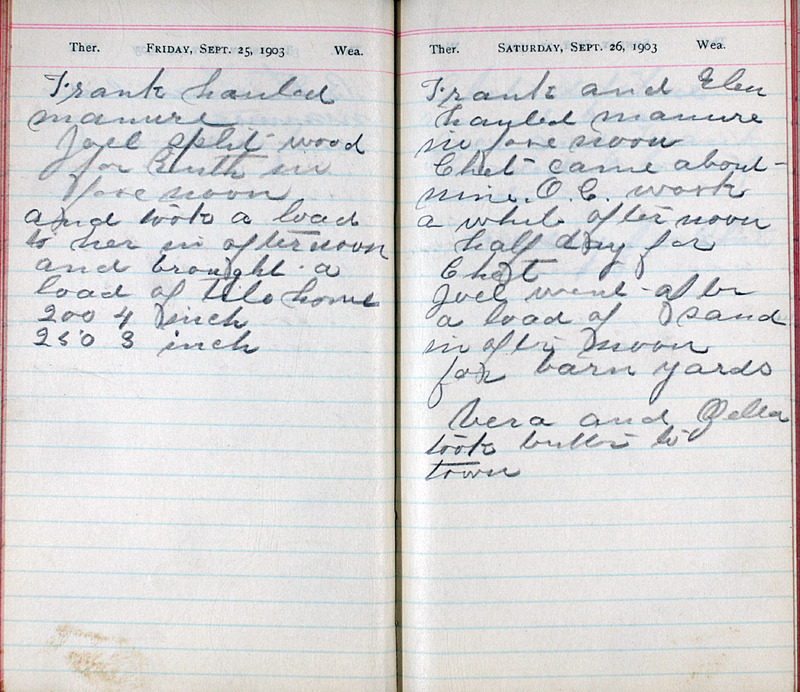 Ther. FRIDAY, SEPT. 25, 1903 Wea.
Frank hauled
manure
Joel split wood
for Ruth in
fore noon
and took a load
to her in afternoon
and brought a
load of tile home
200 4 inch
250 3 inch
Ther. SATURDAY, SEPT. 26, 1903 Wea.
Frank and
hauled manure
in fore noon
Chet came about
nine. O.C. work
a while after noon
half day for
Chet
Joel went after
a load of sand
in after noon
for barn yards
Vera and
took butter to
town